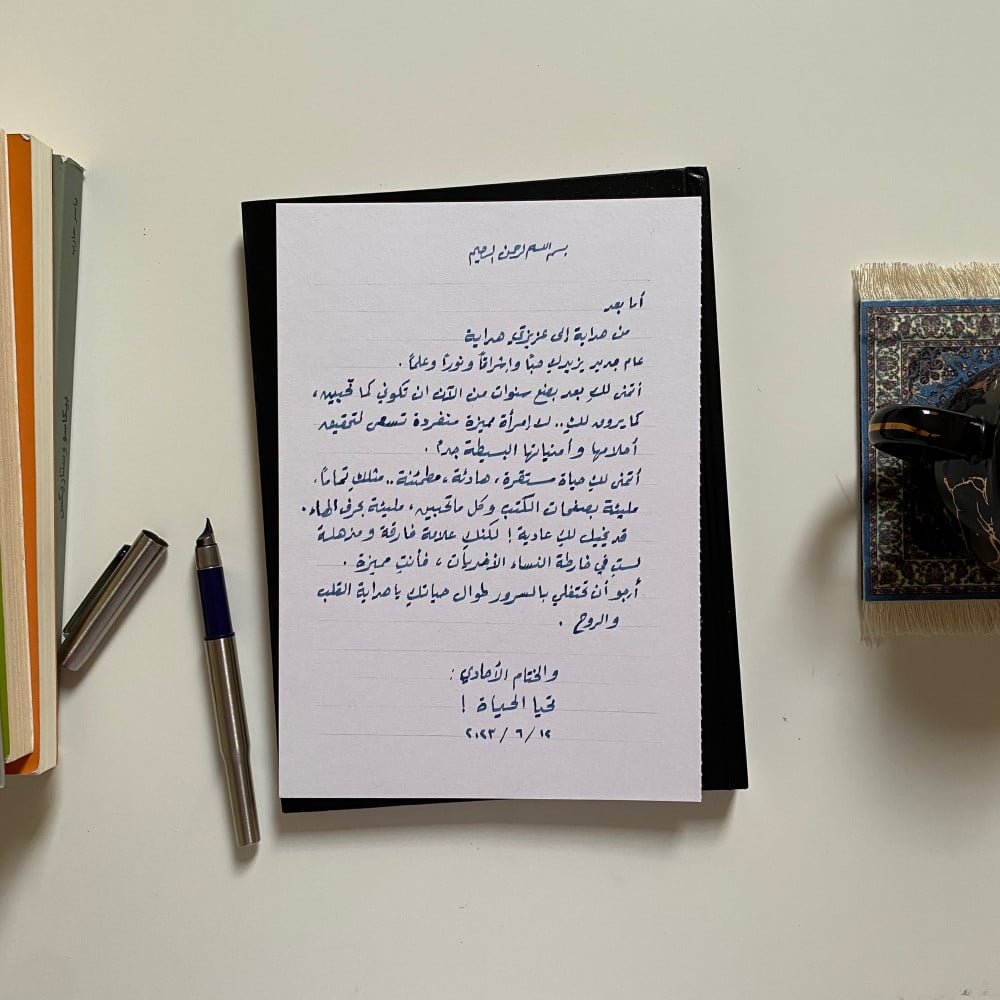 بسم الله الرحمن الرحيم
أما بعد
من هداية إلى عزيزتي هداية
عام جديد يزيدكِ حبًا وإشراقاً ونورًا وعلماً .
أتمنى لكِ بعد بضع سنوات من الآن ان تكوني كما تحبين ،
كما يرون لكِ .. لا امرأة مميزة منفردة تسعى لتحقيق
أحلامها وأمنياتها البسيطة جداً .
أتمنى لكِ حياة مستقرة ، هادئة ، مطمئنة .. مثلكِ تماماً .
مليئة بصفحات الكتب وكل ماتحبين ، مليئة بحرف الهاء .
قد يخيل لكِ عادية ! لكنكِ علامة فارقة ومذهلة
لستِ في خارطة النساء الأخريات ، فأنتِ مميزة .
أرجو أن تحتفلي بالسرور طوال حياتكِ ياهداية القلب
والروح .
والختام الأحادي :
تحيا الحياة !
١٢ / ٦ / ٢٠٢٣
ياسر حارب
بيكاسو وستاربكس